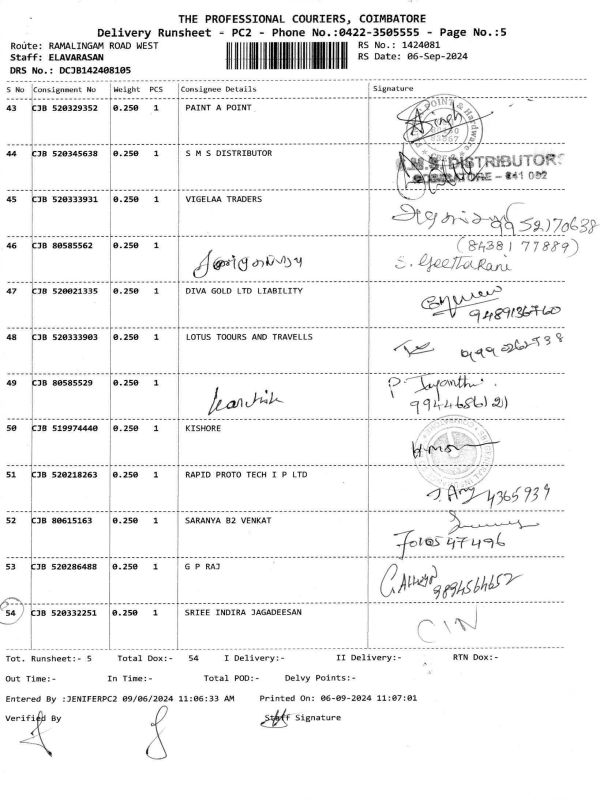 THE PROFESSIONAL COURIERS, COIMBATORE
Delivery Runsheet - PC2 - Phone No.:0422-3505555 - Page No.:5
Route: RAMALINGAM ROAD WEST RS No.: 1424081
Staff: ELAVARASAN RS Date: 06-Sep-2024
DRS No.: DCJB142408105
S No Consignment No Weight PCS Consignee Details Signature
43 CJB 520329352 0.250 1 PAINT A POINT
44 CJB 520345638 0.250 1 S M S DISTRIBUTOR
S.M.S DISTRIBUTORS
COIMBATORE - 641 002
45 CJB 520333931 0.250 1 VIGELAA TRADERS
9952170638
46 CJB 80585562 0.250 1 (8438177889)
S. Geetha Rani
47 CJB 520021335 0.250 1 DIVA GOLD LTD LIABILITY
9489136760
48 CJB 520333903 0.250 1 LOTUS TOOURS AND TRAVELLS
49 CJB 80585529 0.250 1 Karthik P. Jayanthi.
9944686121
50 CJB 519974440 0.250 1 KISHORE
51 CJB 520218263 0.250 1 RAPID PROTO TECH I P LTD
4365939
52 CJB 80615163 0.250 1 SARANYA B2 VENKAT
7010547496
53 CJB 520286488 0.250 1 G P RAJ
9894564652
54 CJB 520332251 0.250 1 SRIEE INDIRA JAGADEESAN
CIN
Tot. Runsheet:- 5 Total Dox:- 54 I Delivery:- II Delivery:- RTN Dox:-
Out Time:- In Time:- Total POD:- Delvy Points:-
Entered By :JENIFERPC2 09/06/2024 11:06:33 AM Printed On: 06-09-2024 11:07:01
Verified By Staff Signature